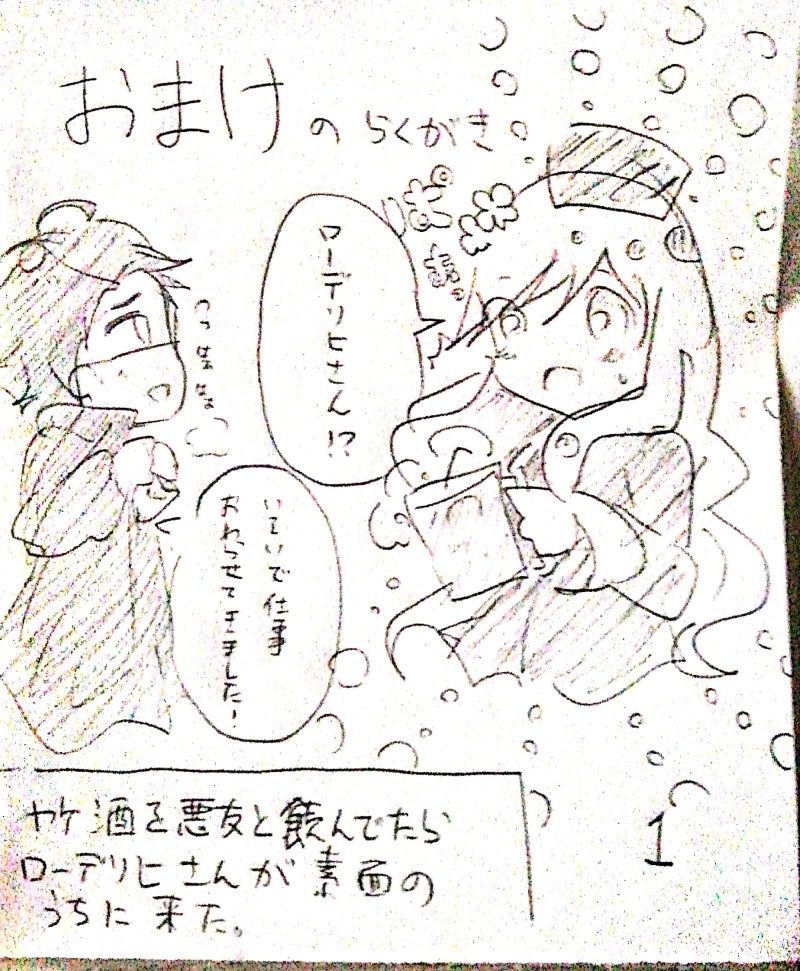 おまけのらくがき
ローデリヒさん!?
いそいで仕事
おわらせてきました!
ヤケ酒を悪友と飲んでたら
ローデリヒさんが素面の
うちに来た。
1